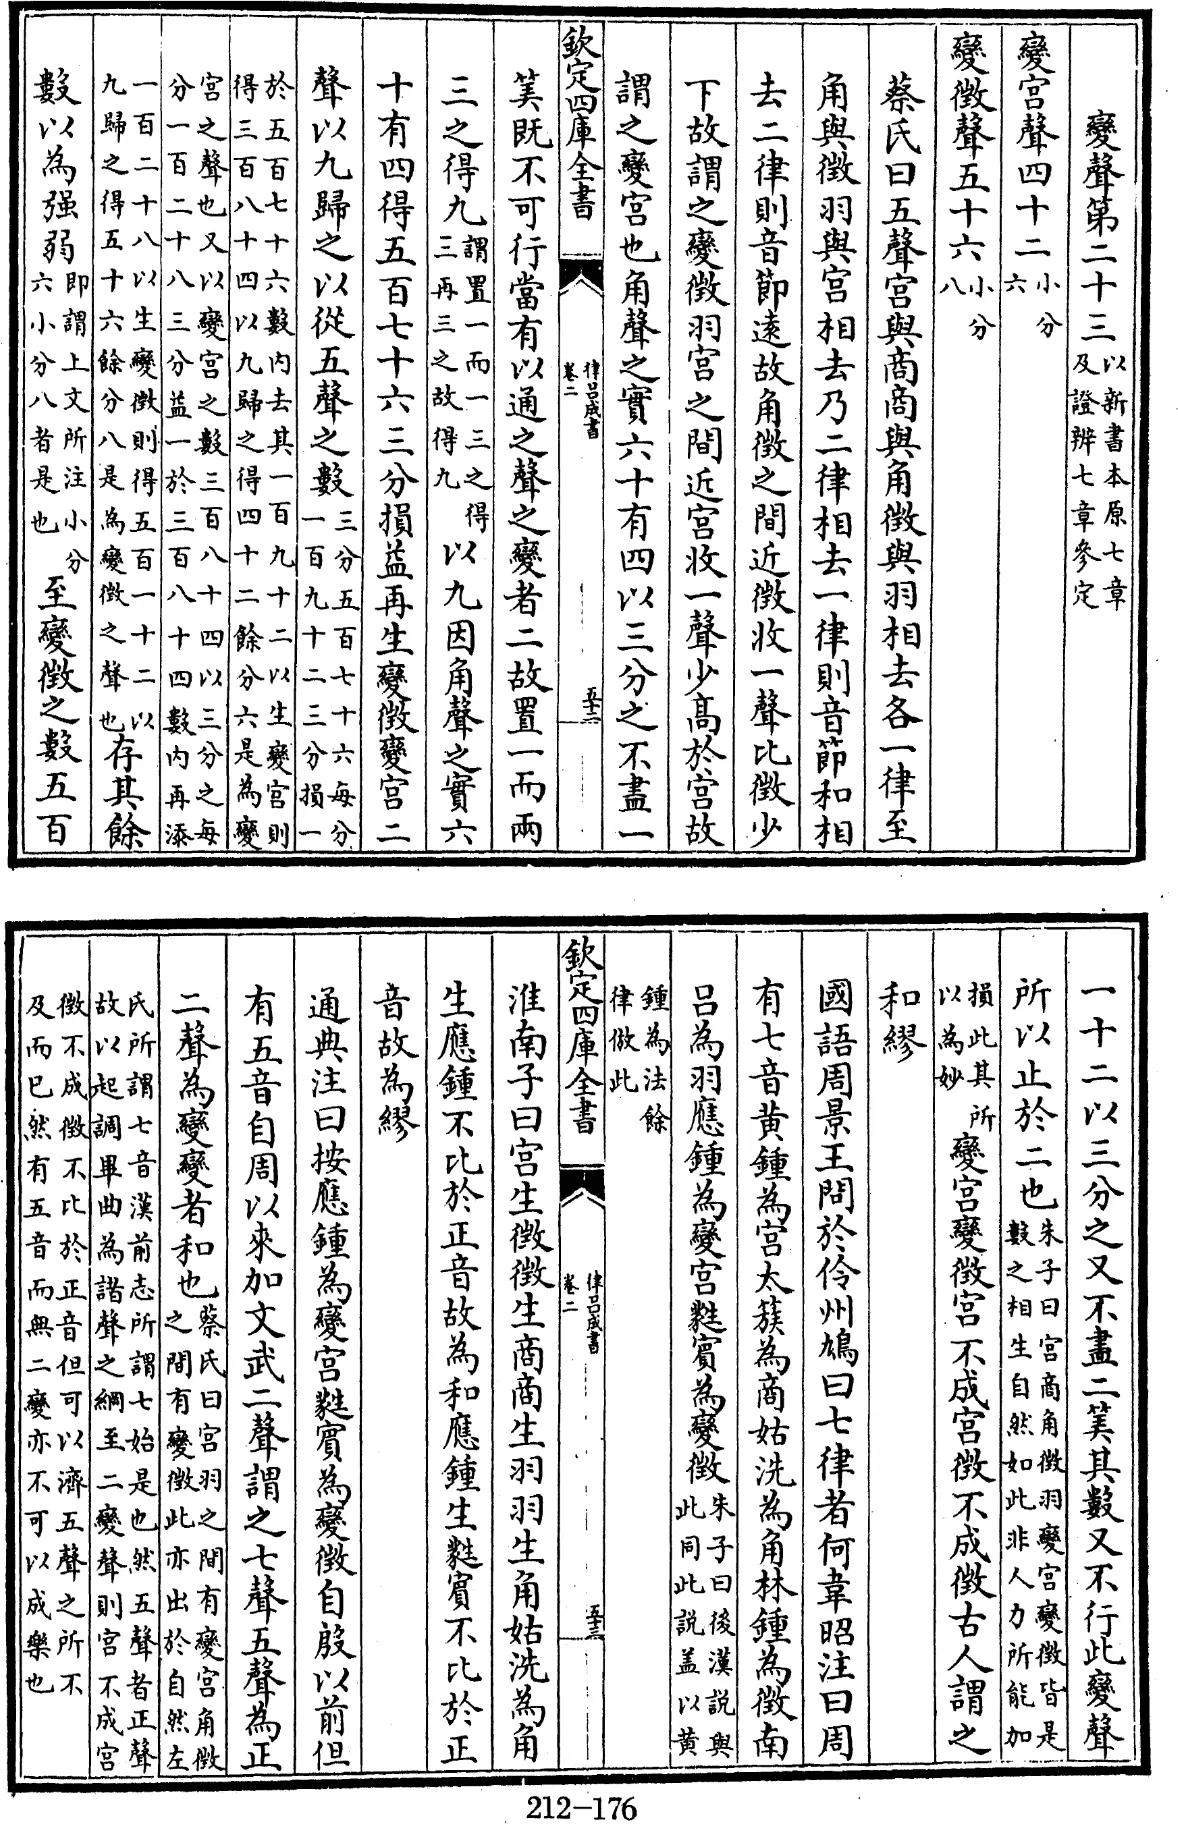 變聲第二十三以新書本原七章及證辨七章參定
變宮聲四十二小分六
變徴聲五十六小分八
蔡氏曰五聲宮與商商與角徴與羽相去各一律至
角與徴羽與宮相去乃二律相去一律則音節和相
去二律則音節逺故角徴之間近徴收一聲比徴少
下故謂之變徴羽宮之間近宮收一聲少髙於宮故
謂之變宮也角聲之實六十有四以三分之不盡一
欽定四庫全書
律呂成書
卷二
筭既不可行當有以通之聲之變者二故置一而兩
三之得九謂置一而一三之得三再三之故得九以九因角聲之實六
十有四得五百七十六三分損益再生變徴變宮二
聲以九歸之以從五聲之數三分五百七十六每分一百九十二三分損一
於五百七十六數内去其一百九十二以生變宮則得三百八十四以九歸之得四十二餘分六是為變
宮之聲也又以變宮之數三百八十四以三分之每分一百二十八三分益一於三百八十四數内再添
一百二十八以生變徴則得五百一十二以九歸之得五十六餘分八是為變徴之聲也存其餘
數以為强弱即謂上文所注小分六小分八者是也至變徴之數五百
一十二以三分之又不盡二筭其數又不行此變聲
所以止於二也朱子曰宮商角徴羽變宮變徴皆是數之相生自然如此非人力所能加
損此其所以為妙變宮變徴宮不成宮徴不成徴古人謂之
和繆
國語周景王問於伶州鳩曰七律者何韋昭注曰周
有七音黄鍾為宮太簇為商姑洗為角林鍾為徴南
呂為羽應鍾為變宮蕤賓為變徴朱子曰後漢說與此同此説盖以黄
鍾為法餘律倣此
欽定四庫全書
律呂成書
卷二
淮南子曰宮生徴徴生商商生羽羽生角姑洗為角
生應鍾不比於正音故為和應鍾生蕤賓不比於正
音故為繆
通典注曰按應鍾為變宮蕤賓為變徴自殷以前但
有五音自周以來加文武二聲謂之七聲五聲為正
二聲為變變者和也蔡氏曰宮羽之間有變宮角徴之間有變徴此亦出於自然左
氏所謂七音漢前志所謂七始是也然五聲者正聲故以起調畢曲為諸聲之綱至二變聲則宮不成宮
徴不成徴不比於正音但可以濟五聲之所不及而已然有五音而無二變亦不可以成樂也
212-176